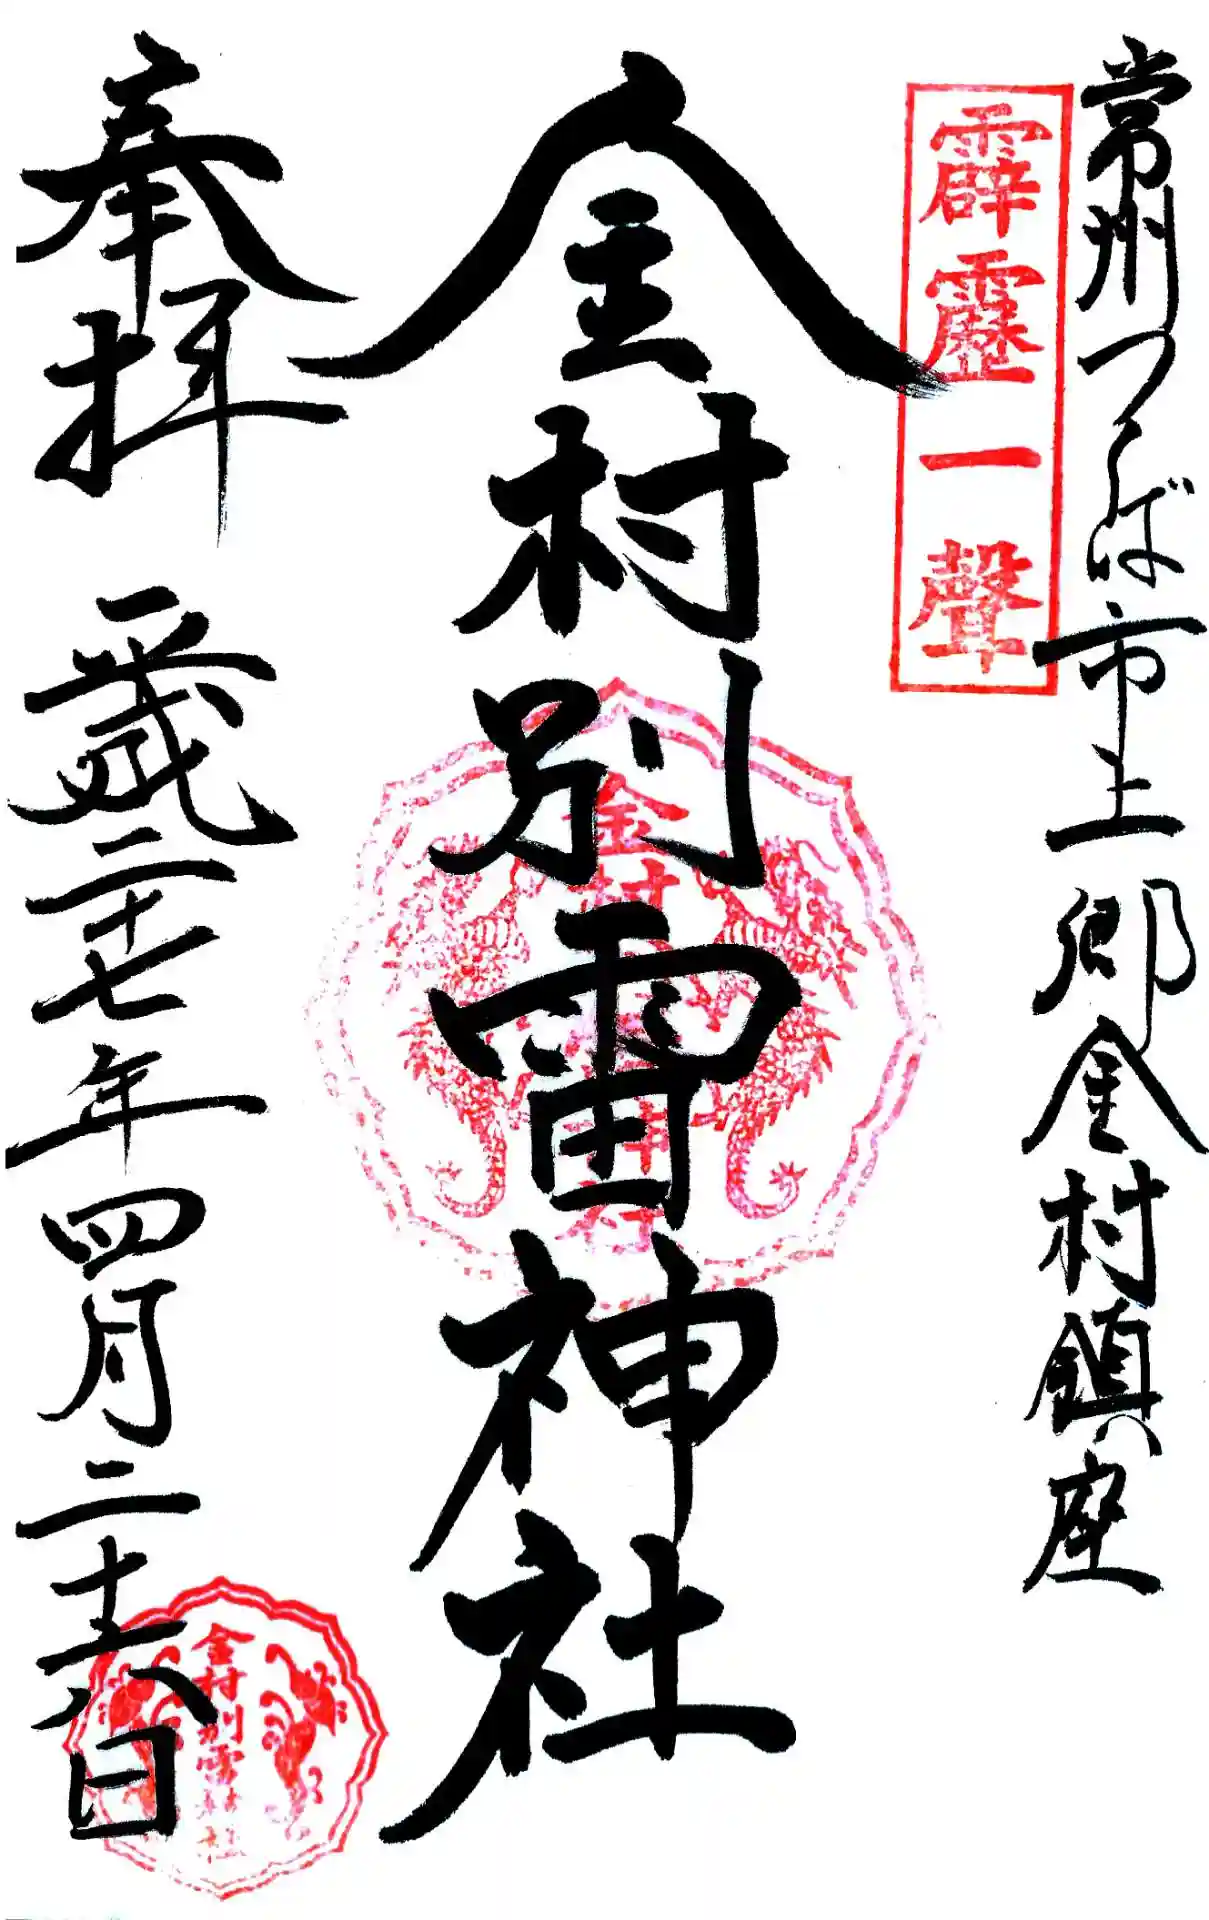 常州つくば市上郷金村鎮座
霹靂一聲
金村別雷神社
奉拝 平成二十七年四月二十六日
金村別雷神社